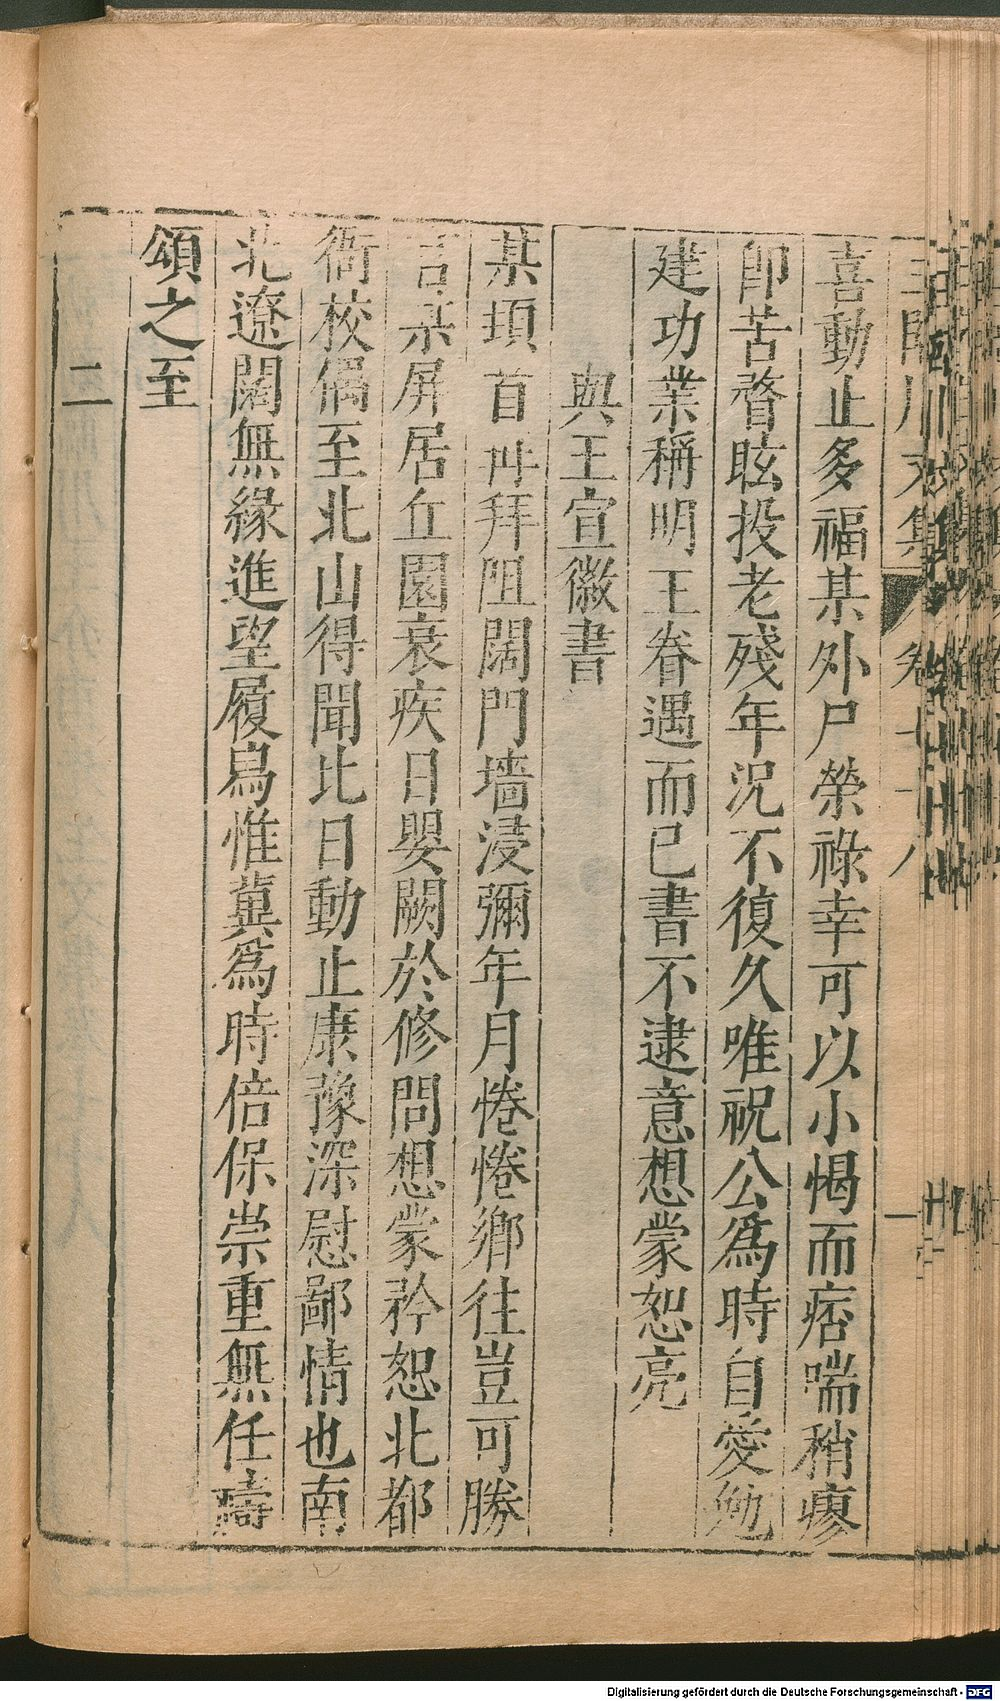 王臨川文集 卷七十八 一
喜動止多福某外尸榮祿幸可以小愒而痞喘稍瘳
即苦瞀眩投老殘年況不復久唯祝公爲時自愛勉
建功業稱明王眷遇而已書不逮意想蒙恕亮
與王宣徽書
某頊首冉拜阻闊門墻浸彌年月惓惓鄉往豈可勝
言某屏居丘園衰疾日嬰闕於修問想蒙矜恕北都
衙校偶至北山得聞比日動止康豫深慰鄙情也南
北遼闊無緣進望履舄惟冀爲時倍保崇重無任禱
頌之至
二
Digitalisierung gefördert durch die Deutsche Forschungsgemeinschaft - DFG